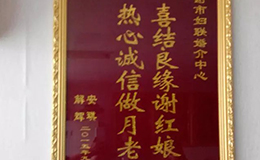 市妇联婚介中心
喜结良缘谢红娘
热心诚信做月老
安琪
解辉
二〇一五年